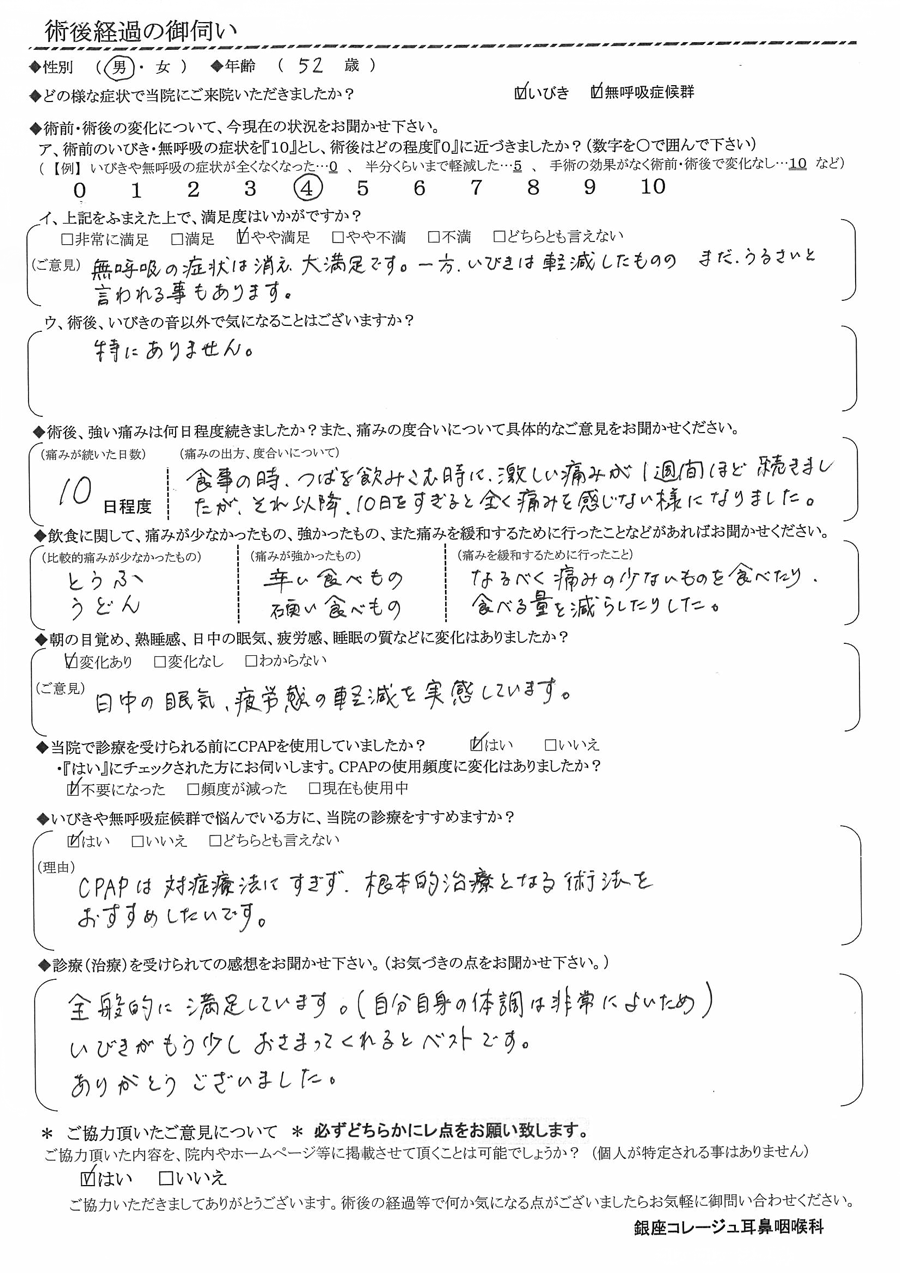 術後経過の御伺い
◆性別 （ 男 ・ 女 ） ◆年齢 （ 52 歳 ）
◆どの様な症状で当院にご来院いただきましたか？ ☑いびき ☑無呼吸症候群
◆術前・術後の変化について、今現在の状況をお聞かせ下さい。
ア、術前のいびき・無呼吸の症状を『10』とし、術後はどの程度『0』に近づきましたか？（数字を○で囲んで下さい）
（【例】 いびきや無呼吸の症状が全くなくなった…0 、 半分くらいまで軽減した…5 、 手術の効果がなく術前・術後で変化なし…10 など）
0 1 2 3 ④ 5 6 7 8 9 10
イ、上記をふまえた上で、満足度はいかがですか？
□非常に満足 □満足 ☑やや満足 □やや不満 □不満 □どちらとも言えない
（ご意見） 無呼吸の症状は消え、大満足です。一方、いびきは軽減したものの まだ、うるさいと
言われる事もあります。
ウ、術後、いびきの音以外で気になることはございますか？
特にありません。
◆術後、強い痛みは何日程度続きましたか？また、痛みの度合いについて具体的なご意見をお聞かせください。
（痛みが続いた日数） （痛みの出方、度合いについて）
食事の時、つばを飲みこむ時に、激しい痛みが1週間ほど続きまし
10 日程度 たが、それ以降、10日をすぎると全く痛みを感じない様になりました。
◆飲食に関して、痛みが少なかったもの、強かったもの、また痛みを緩和するために行ったことなどがあればお聞かせください。
（比較的痛みが少なかったもの） （痛みが強かったもの） （痛みを緩和するために行ったこと）
とうふ 辛い食べもの なるべく痛みの少ないものを食べたり、
うどん 硬い食べもの 食べる量を減らしたりした。
◆朝の目覚め、熟睡感、日中の眠気、疲労感、睡眠の質などに変化はありましたか？
☑変化あり □変化なし □わからない
（ご意見） 日中の眠気、疲労感の軽減を実感しています。
◆当院で診療を受けられる前にCPAPを使用していましたか？ ☑はい □いいえ
・『はい』にチェックされた方にお伺いします。CPAPの使用頻度に変化はありましたか？
☑不要になった □頻度が減った □現在も使用中
◆いびきや無呼吸症候群で悩んでいる方に、当院の診療をすすめますか？
☑はい □いいえ □どちらとも言えない
（理由）
CPAPは対症療法にすぎず、根本的治療となる術法を
おすすめしたいです。
◆診療（治療）を受けられての感想をお聞かせ下さい。（お気づきの点をお聞かせ下さい。）
全般的に満足しています。（自分自身の体調は非常によいため）
いびきがもう少しおさまってくれるとベストです。
ありがとうございました。
＊ ご協力頂いたご意見について ＊ 必ずどちらかにレ点をお願い致します。
ご協力頂いた内容を、院内やホームページ等に掲載させて頂くことは可能でしょうか？ （個人が特定される事はありません）
☑はい □いいえ
ご協力いただきましてありがとうございます。術後の経過等で何か気になる点がございましたらお気軽に御問い合わせください。
銀座コレージュ耳鼻咽喉科